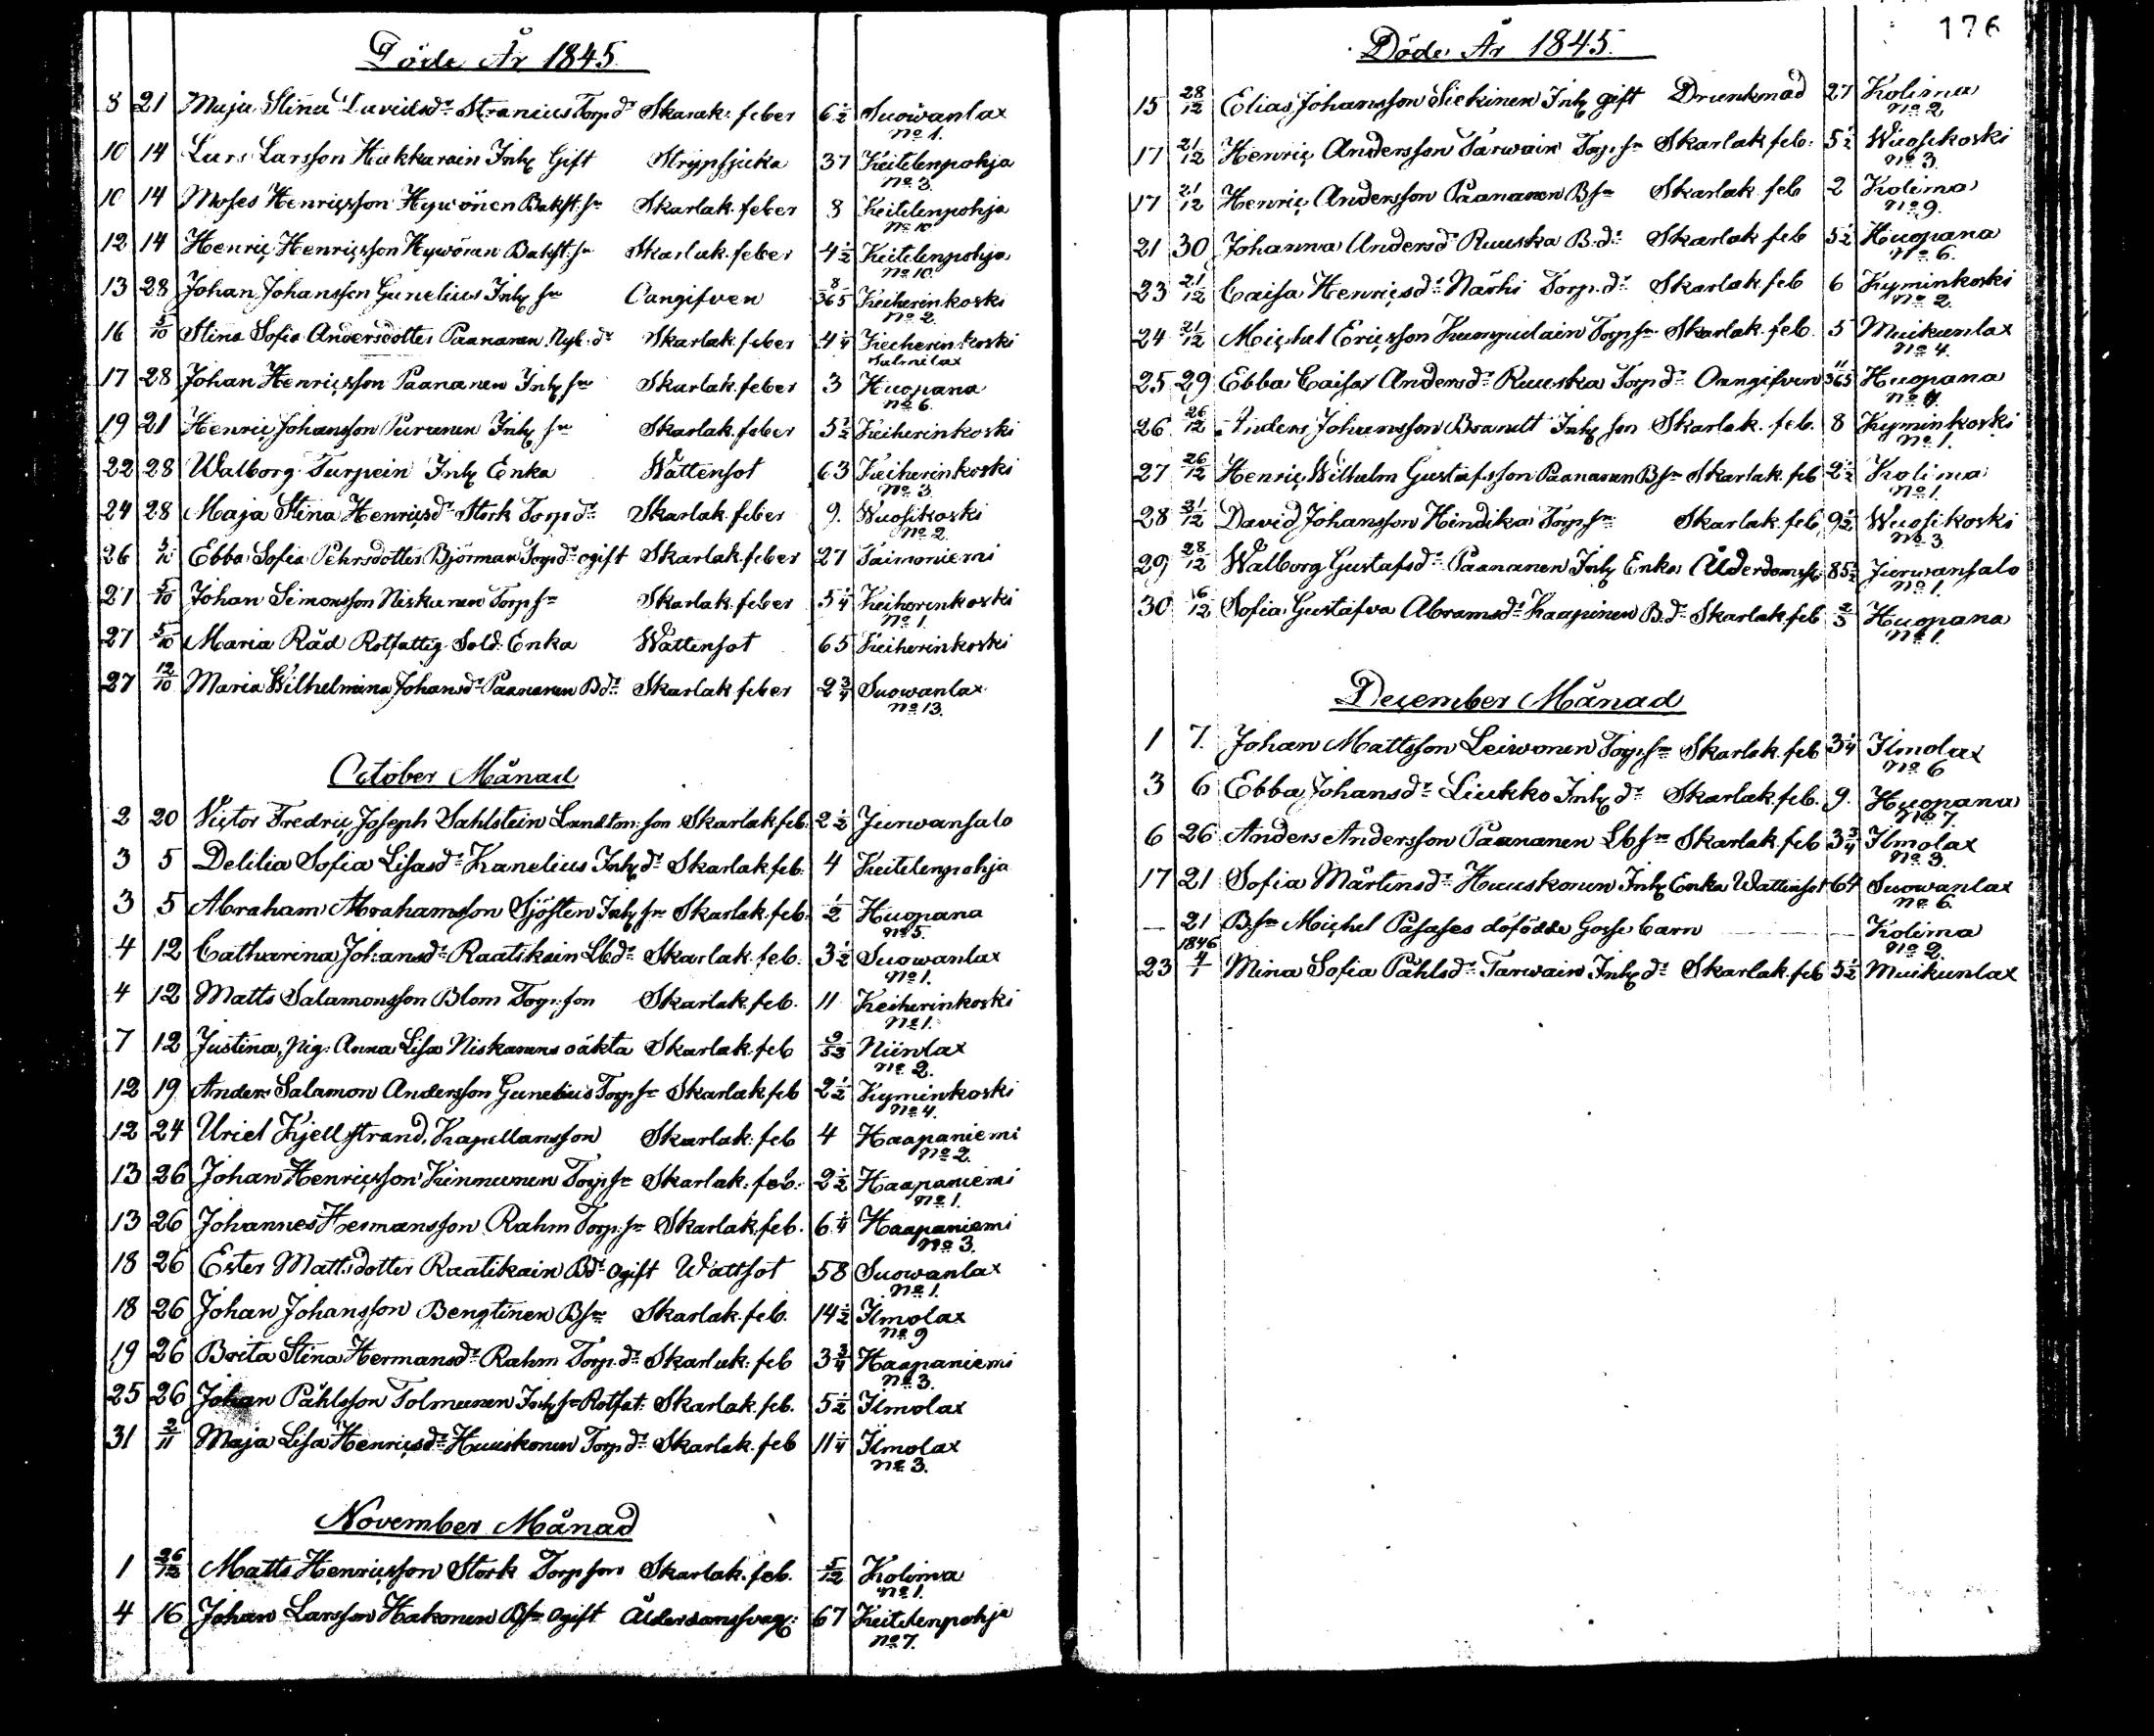 Döde År 1845.
8 21 Maja Stina Davidsdr Stranius Torp.dr Skarak: feber 6½ Suowanlax
No 1.
10 14 Lars Larsson Hakkarain Inh Gift Strypsjuka 37 Keitelenpohja
No 3.
10 14 Moses Henricsson Hywönen Bakst.sn Skarlak. feber 8 Keitelenpohja
No 10
12 14 Henric Henricsson Hywönen Bakst.sn Skarlak. feber 4½ Keitelenpohja
No 10.
13 28 Johan Johansson Gunelius Inh sn Oangifven 8/365 Keiherinkoski
No 2.
16 5/10 Stina Sofia Andersdotter Paananen Nyb. dr Skarlak. feber 4¼ Keiherinkoski
Salmilax
17 28 Johan Henricsson Paananen Inh sn Skarlak. feber 3 Huopana
No 6.
19 21 Henric Johansson Puranen Inh sn Skarlak. feber 5½ Keiherinkoski
22 28 Walborg Turpein Inh Enka Wattensot 63 Keiherinkoski
No 3.
24 28 Maja Stina Henricsdr Stork Torp dr Skarlak. feber 9. Wuosikoski
No 2.
26 Ebba Sofia Pehrsdotter Björman Torpdr ogift Skarlak. feber 27 Taimoniemi
27 5/10 Johan Simonsson Niskanen Torp sn Skarlak. feber 5¼ Keiherinkoski
No 1.
27 5/10 Maria Råd Rotfattig Sold. Enka Wattensot 65 Keiherinkoski
27 12/10 Maria Wilhelmina Johansdr Paananen Bdr Skarlak feber 2¾ Suowanlax
No 13.
October Månad
2 20 Victor Fredric Joseph Dahlstein Landtm: son Skarlak feb: 2½ Jurwansalo
3 5 Delilia Sofia Lisasdr Kanelius Inh dr Skarlak. feb: 4 Keitelenpohja
3 5 Abraham Abrahamsson Sjösten Inh sn Skarlak. feb. ½ Huopana
No 5.
4 12 Catharina Johansdr Raatikain Lbdr Skarlak. feb. 3½ Suowanlax
No 1.
4 12 Matts Salamonsson Blom Torp: son Skarlak. feb. 11 Keiherinkoski
No 1.
7 12 Justina, Pig: Anna Lisa Niskanens oäkta Skarlak. feb 9/53 Niinilax
No 2.
12 19 Anders Salamon Andersson Gunelius Torp sn Skarlak feb 2½ Kyminkoski
No 4.
12 24 Uriel Kjellstrand, Kapellansson Skarlak: feb 4 Haapaniemi
No 2.
13 26 Johan Henricsson Kinnunen Torp sn Skarlak: feb: 2½ Haapaniemi
No 1.
13 26 Johannes Hermansson Rahm Torp: sn Skarlak. feb. 6¼ Haapaniemi
No 3.
18 26 Ester Mattsdotter Raatikain Bdr ogift Wattsot 58 Suowanlax
No 1.
18 26 Johan Johansson Bengtinen Bsn Skarlak. feb. 14½ Ilmolax
No 9
19 26 Brita Stina Hermansdr Rahm Torp. dr Skarlak: feb 3¾ Haapaniemi
No 3.
25 26 Johan Påhlsson Tolmunen Inh sn Rotfat: Skarlak. feb. 5½ Ilmolax
31 2/11 Maja Lisa Henricsdr Huuskonen Torp dr Skarlak. feb 11¼ Ilmolax
No 3.
November Månad
1 26/12 Matts Henricsson Stork Torp son Skarlak. feb. 5/12 Kolima
No 1.
4 16 Johan Larsson Hakonen Bsn ogift Ålderdomsvag: 67 Keitelenpohja
No 7.
176
Döde År 1845.
15 28/12 Elias Johansson Siekinen Inh gift Drunknad 27 Kolima
No 2
17 21/12 Henric Andersson Tarwain Torp. sn Skarlak feb: 5½ Wuosikoski
No 3.
17 21/12 Henric Andersson Paananen Bsn Skarlak. feb 2 Kolima
No 9.
21 30 Johanna Andersdr Ruuska B.dr Skarlak feb 5½ Huopana
No 6.
23 21/12 Caisa Henricsdr Närhi Torp. dr Skarlak. feb 6 Kyminkoski
No 2.
24 21/12 Michel Ericsson Kumpulain Torp sn Skarlak. feb. 5 Muikunlax
No 4.
25 29 Ebba Caisa Andersdr Ruuska Torp dr Oangifven 11/365 Huopana
26 26/12 Anders Johansson Brandt Inh son Skarlak. feb. 8 Kyminkoski
No 1.
27 26/12 Henric Wilhelm Gustafsson Paananen Bsn Skarlak. feb 2½ Kolima
No 1.
28 21/12 David Johansson Hindika Torp sn Skarlak. feb, 9½ Wuosikoski
No 3
29 28/12 Walborg Gustafsdr Paananen Inh Enka Ålderdomsb 85½ Jurwansalo
No 1.
30 16/12 Sofia Gustafva Abramsdr Kaapinen B.dr Skarlak feb Huopana
No 1.
December Månad
1 7. Johan Mattsson Leiwonen Torp. sn Skarlak. feb 3¼ Ilmolax
No 6
3 6 Ebba Johansdr Liukko Inh dr Skarlak. feb. 9. Huopana
No 7.
6 26 Anders Andersson Paananen Lbsn Skarlak. feb 3¾ Ilmolax
No 3.
17 21 Sofia Mårtensdr Huuskonen Inh Enka Wattensot 64 Suowanlax
No 6.
— 21 Bsn Michel Pasases dödfödde Gosse barn — Kolima
No 2.
1846
23 4/1 Mina Sofia Påhlsdr Tarwain Inh dr Skarlak. feb 5½ Muikunlax